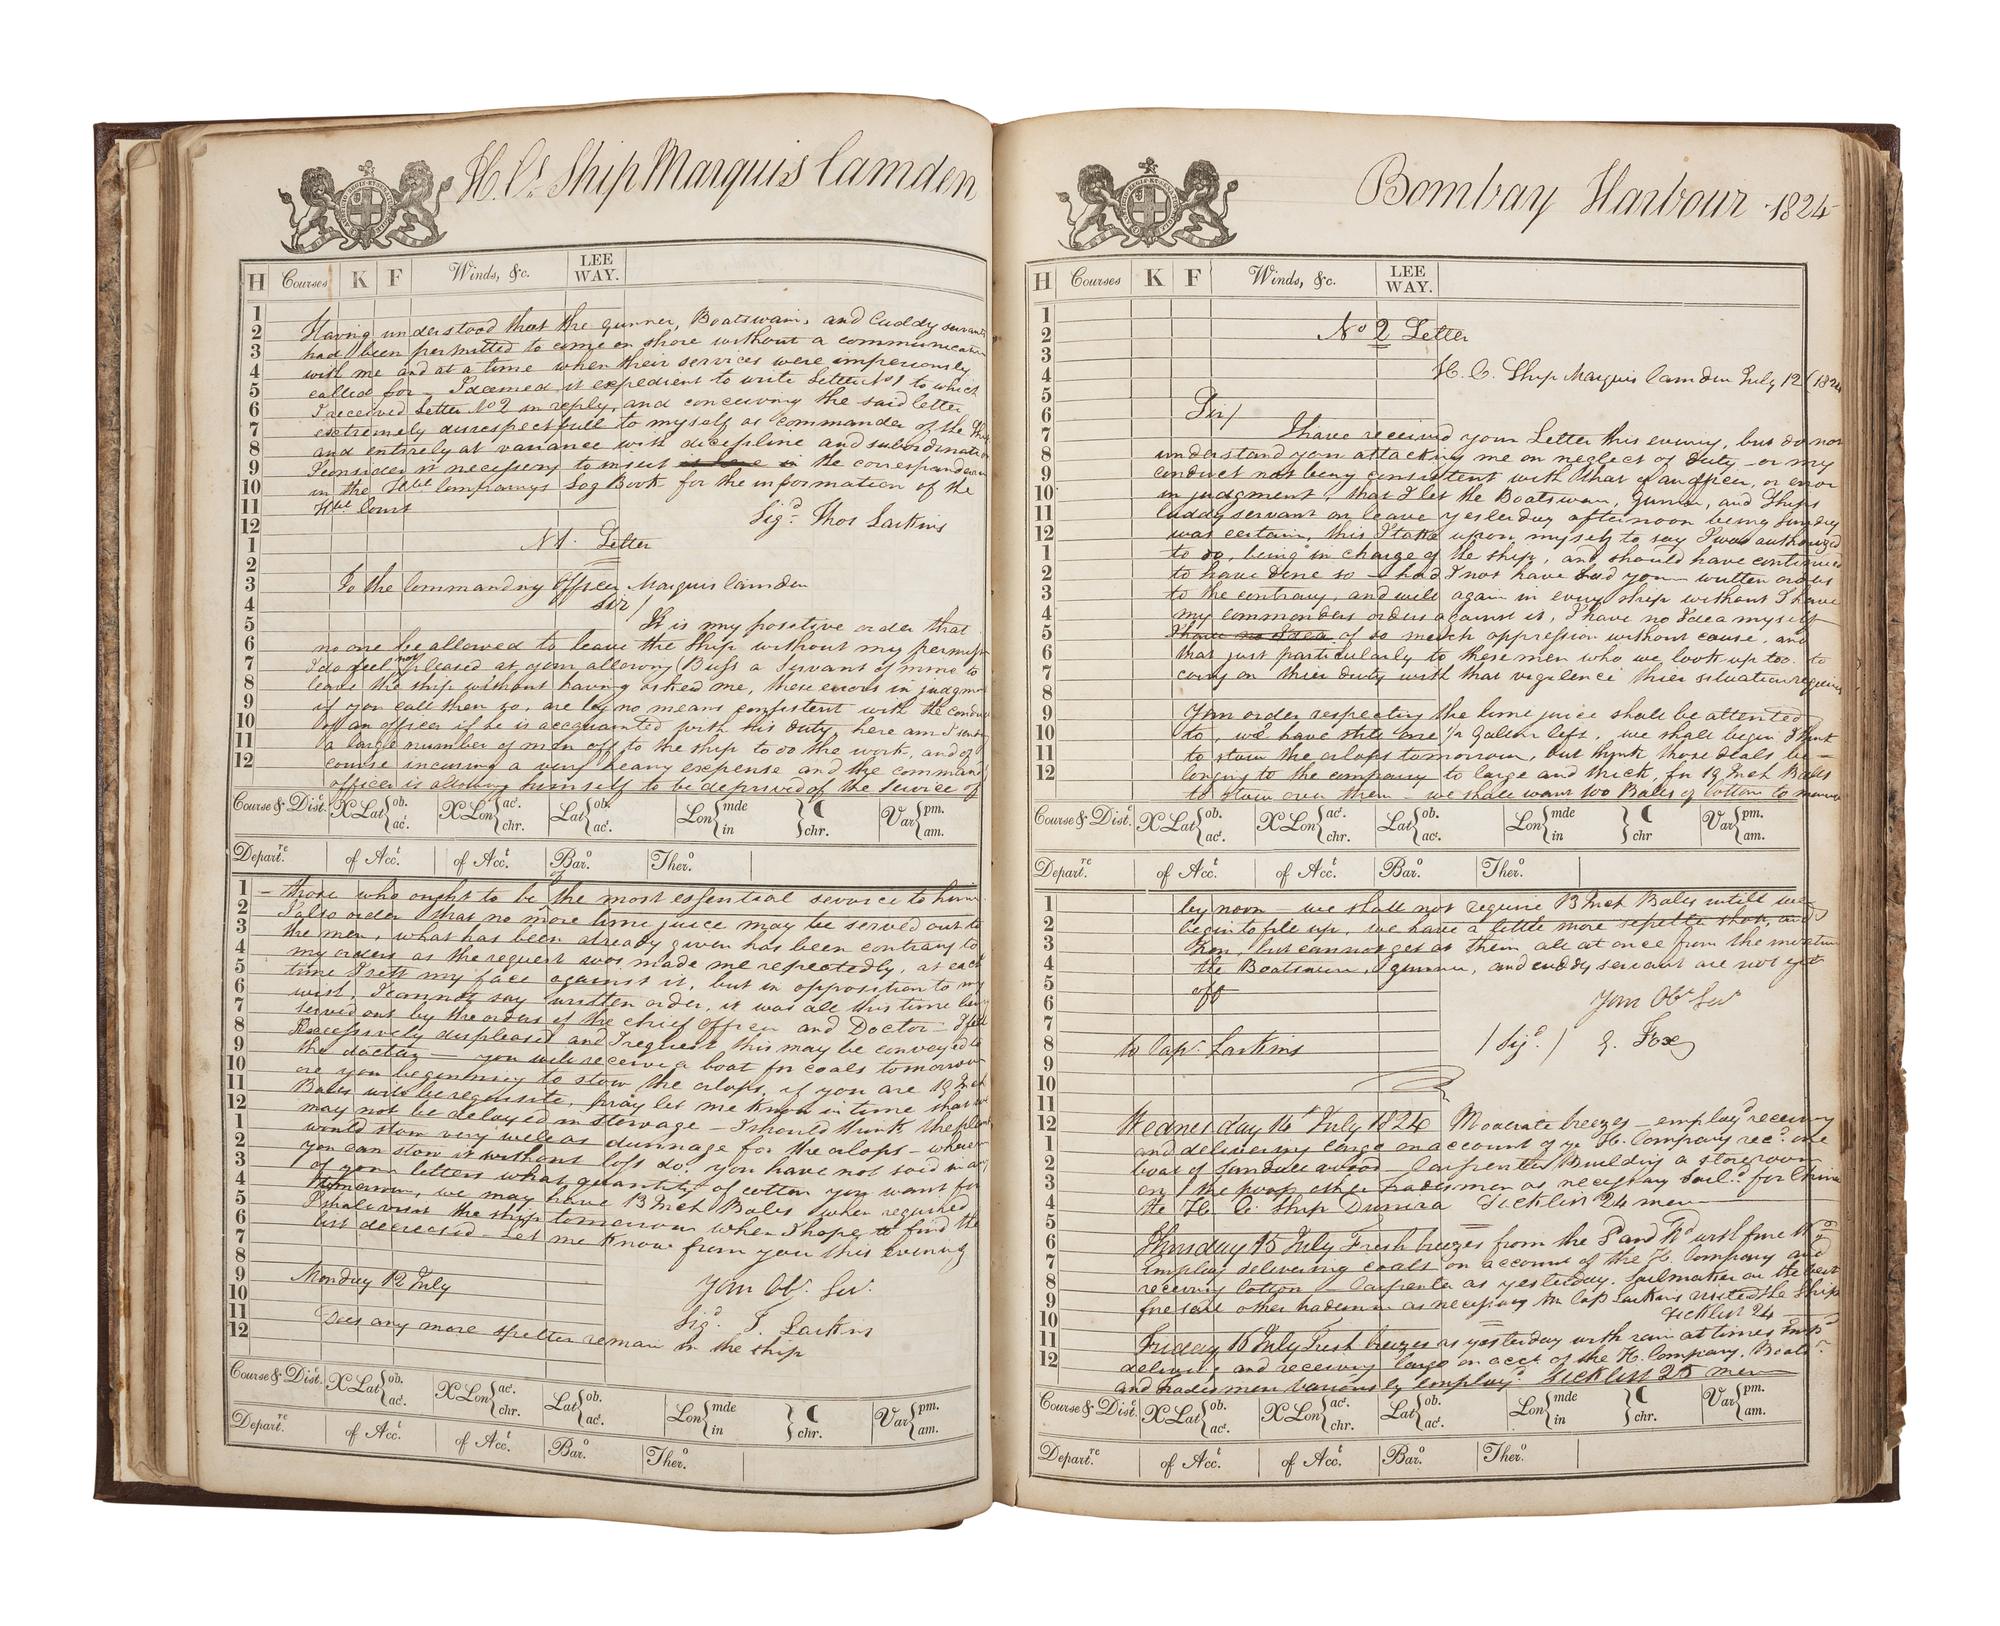 H. C.s Ship Marquis Camden
H Courses K F Winds, &c. LEE WAY.
1
2
3
4
5
6
7
8
9
10
11
12
1
2
3
4
5
6
7
8
9
10
11
12
Having understood that the gunner, Boatswain, and Cuddy servants
had been permitted to come on shore without a communication
with me and at a time when their services were imperiously
called for – I deemed it expedient to write Letter No 1 to which
I received Letter No 2 in reply, and conceiving the said letter
extremely disrespectfull to myself as commander of the Ship
and entirely at variance with discipline and subordination
I consider it necessary to insert in the correspondence
in the Hble Companys Log Book for the information of the
Hble Court
Sigd. Thos Larkins
No 1. Letter
To the Commanding Officer Marquis Camden
Sir/
It is my positive order that
no one be allowed to leave the ship without my permission
I do feel not pleased at your allowing a Servant of mine to
leave the ship without having asked me, these errors in judgment
if you call them so, are by no means consistent with the conduct
of an officer if he is accquainted with his duty, here am I sending
a large number of men off to the ship to do the work, and of
course incuring a very heavy expense and the command.g
officer is allowing himself to be deprived of the service of
Course & Dist.e X Lat ob. ac.t X Lon ac.t chr. Lat ob. ac.t Lon mde in chr. Var pm. am.
Depart.re of Acc.t of Acc.t Bar.o Ther.o
1
2
3
4
5
6
7
8
9
10
11
12
1
2
3
4
5
6
7
8
9
10
11
12
– those who ought to be of the most essential service to him
I also order that no more lime juice may be served out to
the men, what has been already given has been contrary to
my orders as the request was made me repeatedly, at each
time I sett my face against it, but in opposition to my
wish, I cannot say written order, it was all this time being
served out by the orders of the chief officer and Doctor – I feel
Excessively displeased and I request this may be conveyed to
the doctor – you will receive a boat for coals tomorrow
are you beginning to stow the alops, if you are 19 Inch
Bales will be requisite, pray let me know in time that we
may not be delayed in stowage – I should think the plank
would stow very well as dunnage for the alops – where
you can stow it without loss do; you have not said in any
of your letters what quantity of cotton you want for
tomorrow, we may have B Inch Bales when required
I shall visit the ship tomorrow when I hope to find the
list decreased – Let me know from you this evening
Monday 12 July
Your Ob.t Ser.t
Sig.d T. Larkins
Does any more spelter remain in the ship
Course & Dist.e X Lat ob. ac.t X Lon ac.t chr. Lat ob. ac.t Lon mde in chr. Var pm. am.
Depart.re of Acc.t of Acc.t Bar.o Ther.o
Bombay Harbour 1824
H Courses K F Winds, &c. LEE WAY.
1
2
3
4
5
6
7
8
9
10
11
12
1
2
3
4
5
6
7
8
9
10
11
12
No 2 Letter
H. C. Ship Marquis Camden July 12 1824
Sir/
I have received your Letter this evening, but do not
understand you attacking me on neglect of duty – or my
conduct not being consistent with that of an officer, or error
in judgment, that I let the Boatswain, Gunner, and Ships
Cuddy servant on leave yesterday afternoon being Sunday
was certain, this I take upon myself to say I was authorized
to do, being in charge of the ship, and should have continued
to have done so – had I not have had your written orders
to the contrary, and will again in every ship without I have
my commanders orders against it, I have no Idea myself
I have no Idea of so much oppression without cause, and
that just particularly to these men who we look up too to
carry on thier duty with that vigilence thier situation requires
Your order respecting the lime juice shall be attented
to, we have still one 1/2 Galln left, we shall begin I think
to stow the alops tomorrow, but think those deals be–
longing to the company to large and thick, for 19 Inch Bales
to stow over them – we shall want 100 Bales of Cotton to morrow
Course & Dist.e X Lat ob. ac.t X Lon ac.t chr. Lat ob. ac.t Lon mde in chr Var pm. am.
Depart.re of Acc.t of Acc.t Bar.o Ther.o
1
2
3
4
5
6
7
8
9
10
11
12
1
2
3
4
5
6
7
8
9
10
11
12
by noon – we shall not require B Inch Bales untill we
begin to file up, we have a little more and
Iron, but cannot get at them all at once from the
the Boatswain, Gunner, and cuddy servant are not yet
off
Your Ob.t Ser.t
/Sig.d/ G. Fox
to Cap.t Larkins
Wednesday 14 July 1824 Moderate breezes – employ.d receiving
and delivering cargo on account of ye H. Company rec.d one
boat of Sandall wood – Carpenter Building a storeroom
on the poop other tradesmen as necessary Sail.d for China
the H. C. Ship Dunira Sicklist 24 men
Thursday 15 July Fresh breezes from the
Employ delivering coals on account of the H. Company and
receiving Cotton – Carpenter as yesterday. Sailmaker on the best
foresail other tradesmen as necessary Cap Larkins visited the Ship
Sicklist 24
Friday 16 July Fresh breezes as yesterday with rain at times Emp.d
delivering and receiving Cargo on acct. of the H. Company. Boats.n
and tradesmen variously employ.d Sicklist 25 men
Course & Dist.e X Lat ob. ac.t X Lon ac.t chr. Lat ob. ac.t Lon mde in chr. Var pm. am.
Depart.re of Acc.t of Acc.t Bar.o Ther.o